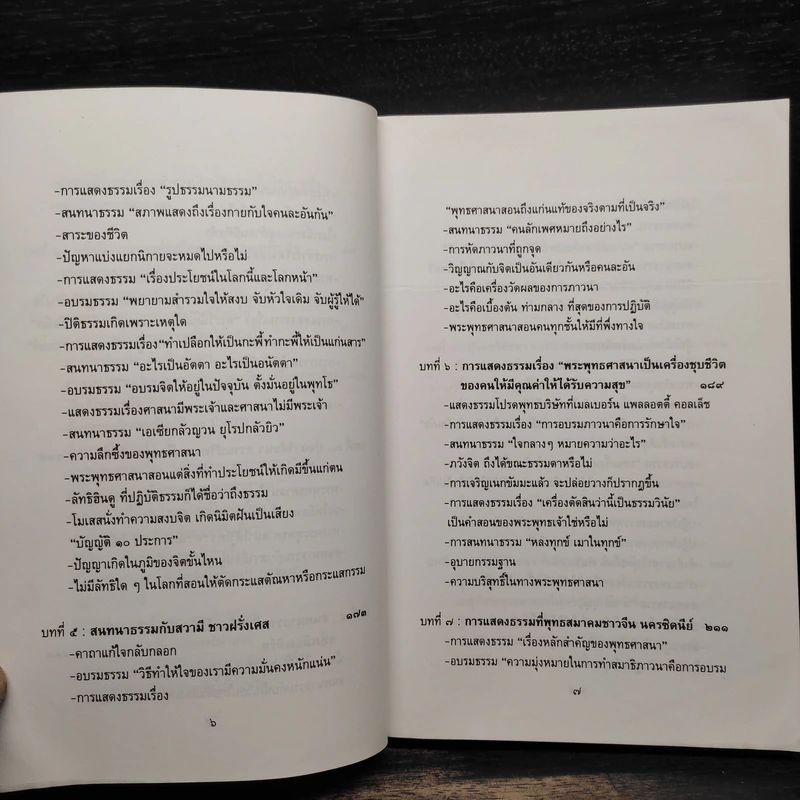 -การแสดงธรรมเรื่อง “รูปธรรมนามธรรม”
-สนทนาธรรม “สภาพแสดงถึงเรื่องกายกับใจคนละอันกัน”
-สาระของชีวิต
-ปัญหาแบ่งแยกนิกายจะหมดไปหรือไม่
-การแสดงธรรม “เรื่องประโยชน์ในโลกนี้และโลกหน้า”
-อบรมธรรม “พยายามสำรวมใจให้สงบ จับหัวใจเดิม จับผู้รู้ให้ได้”
-ปิติธรรมเกิดเพราะเหตุใด
-การแสดงธรรมเรื่อง“ทำเปลือกให้เป็นกะพี้ทำกะพี้ให้เป็นแก่นสาร”
-สนทนาธรรม “อะไรเป็นอัตตา อะไรเป็นอนัตตา”
-อบรมธรรม “อบรมจิตให้อยู่ในปัจจุบัน ตั้งมั่นอยู่ในพุทโธ”
-แสดงธรรมเรื่องศาสนามีพระเจ้าและศาสนาไม่มีพระเจ้า
-สนทนาธรรม “เอเซียกลัวญวน ยุโรปกลัวยิว”
-ความลึกซึ้งของพุทธศาสนา
-พระพุทธศาสนาสอนแต่สิ่งที่ทำประโยชน์ให้เกิดมีขึ้นแก่ตน
-ลัทธิฮินดู ที่ปฏิบัติธรรมก็ได้ชื่อว่าถึงธรรม
-โมเสสนั่งทำความสงบจิต เกิดนิมิตฝันเป็นเสียง
“บัญญัติ ๑๐ ประการ”
-ปัญญาเกิดในภูมิของจิตขั้นไหน
-ไม่มีลัทธิใด ๆ ในโลกที่สอนให้ตัดกระแสตัณหาหรือกระแสกรรม
บทที่ ๕ : สนทนาธรรมกับสวามี ชาวฝรั่งเศส ๑๗๓
-คาถาแก้ใจกลับกลอก
-อบรมธรรม “วิธีทำให้ใจของเรามีความมั่นคงหนักแน่น”
-การแสดงธรรมเรื่อง
๖
“พุทธศาสนาสอนถึงแก่นแท้ของจริงตามที่เป็นจริง”
-สนทนาธรรม “คนลักเพศหมายถึงอย่างไร”
-การหัดภาวนาที่ถูกจุด
-วิญญาณกับจิตเป็นอันเดียวกันหรือคนละอัน
-อะไรคือเครื่องวัดผลของการภาวนา
-อะไรคือเบื้องต้น ท่ามกลาง ที่สุดของการปฏิบัติ
-พระพุทธศาสนาสอนคนทุกชั้นให้มีที่พึ่งทางใจ
บทที่ ๖ : การแสดงธรรมเรื่อง “พระพุทธศาสนาเป็นเครื่องชุบชีวิต
ของคนให้มีคุณค่าให้ได้รับความสุข” ๑๘๙
-แสดงธรรมโปรดพุทธบริษัทที่เมลเบอร์น แพลลอตตี้ คอลเล็ช
-การแสดงธรรมเรื่อง “การอบรมภาวนาคือการรักษาใจ”
-สนทนาธรรม “ใจกลางๆ หมายความว่าอะไร”
-ภวังจิต ถึงได้ขณะธรรมดาหรือไม่
-การเจริญเนกขัมมะแล้ว จะปล่อยวางก็ปรากฏขึ้น
-การแสดงธรรมเรื่อง “เครื่องตัดสินว่านี้เป็นธรรมวินัย”
เป็นคำสอนของพระพุทธเจ้าใช่หรือไม่
-การสนทนาธรรม “หลงทุกข์ เมาในทุกข์”
-อุบายกรรมฐาน
-ความบริสุทธิ์ในทางพระพุทธศาสนา
บทที่ ๗ : การแสดงธรรมที่พุทธสมาคมชาวจีน นครซิดนีย์ ๒๑๑
-การแสดงธรรม “เรื่องหลักสำคัญของพุทธศาสนา”
-อบรมธรรม “ความมุ่งหมายในการทำสมาธิภาวนาคือการอบรม
๗